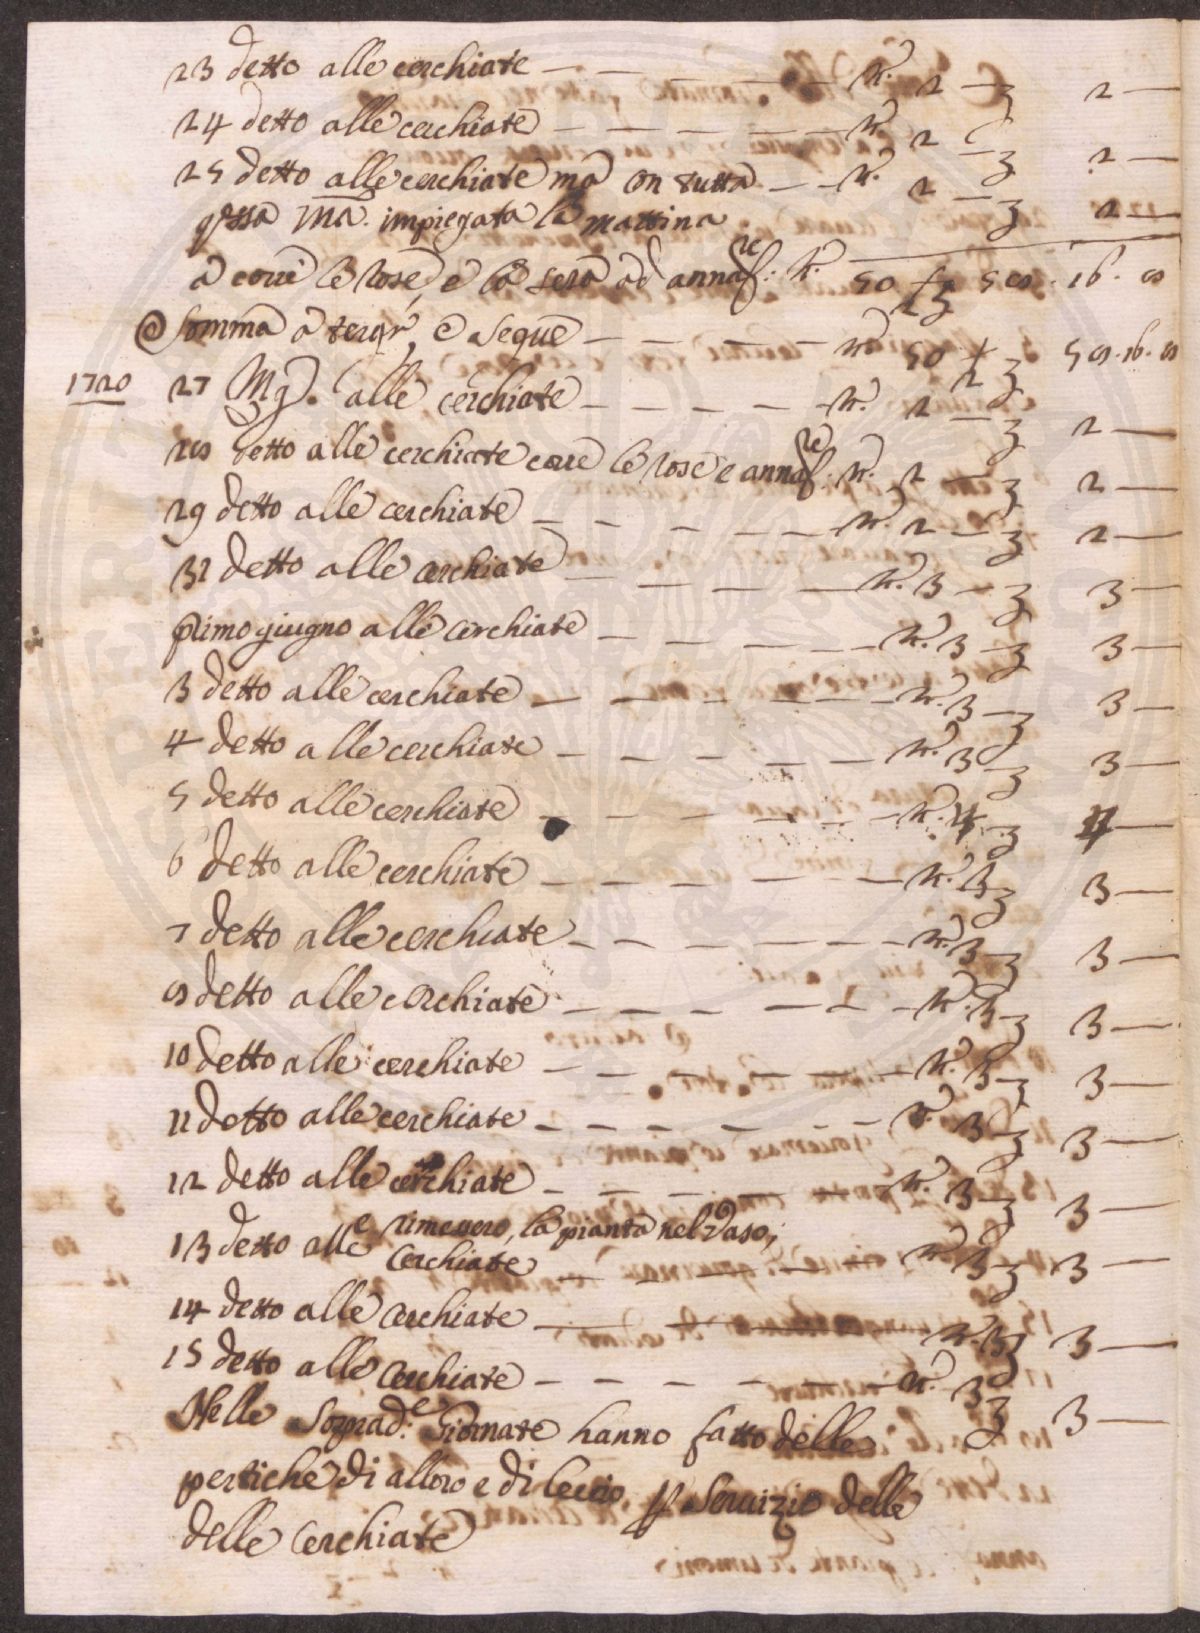 23 detto alle cerchiate — — — — — n.° 2 — 3 2 —
24 detto alle cerchiate — — — — — n.° 2 — 3 2 —
25 detto alle cerchiate mà on tutta — — n.° 2 — 3 2 —
q.essa Mã. impiegata la mattina
à corre le rose, e la sera ad annaf.re: n.° 50 ½ 3 58. 16. 8
Somma à tergo, e segue — — — — n.° 50 ½ 3 58. 16. 8
1720 27 Mg.o alle cerchiate — — — — n.° 2 — 3 2 —
28 detto alle cerchiate corre le rose e annaf.re: n.° 2 — 3 2 —
29 detto alle cerchiate — — — — n.° 2 — 3 2 —
31 detto alle cerchiate — — — — n.° 3 — 3 3 —
primo giugno alle cerchiate — — — — n.° 3 — 3 3 —
3 detto alle cerchiate — — — — n.° 3 — 3 3 —
4 detto alle cerchiate — — — — n.° 3 — 3 3 —
5 detto alle cerchiate — — — — n.° 4 — 3 4 —
6 detto alle cerchiate — — — — n.° 3 — 3 3 —
7 detto alle cerchiate — — — — n.° 3 — 3 3 —
8 detto alle cerchiate — — — — n.° 3 — 3 3 —
10 detto alle cerchiate — — — — n.° 3 — 3 3 —
11 detto alle cerchiate — — — — n.° 3 — 3 3 —
12 detto alle cerchiate — — — — n.° 3 — 3 3 —
e rimevero, la pianta nel Vaso;
13 detto alle Cerchiate — — — — n.° 3 — 3 3 —
14 detto alle Cerchiate — — — — n.° 3 — 3 3 —
15 detto alle Cerchiate — — — — n.° 3 — 3 3 —
Nelle Soprad.e Giornate hanno fatto delle
pertiche di alloro e di leccio p Servizio delle
delle Cerchiate